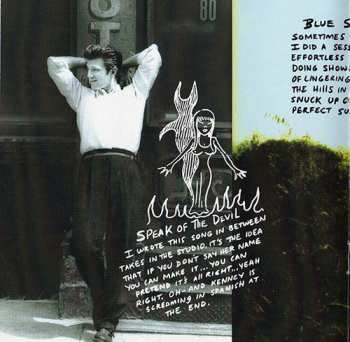 ST
80
BLUE S
SOMETIMES
I DID A SESS
EFFORTLESS
DOING SHOWS
OF LINGERING
THE HILLS IN
SNUCK UP O
PERFECT SU
SPEAK OF THE DEVIL
I WROTE THIS SONG IN BETWEEN
TAKES IN THE STUDIO. IT'S THE IDEA
THAT IF YOU DON'T SAY HER NAME
YOU CAN MAKE IT... YOU CAN
PRETEND IT'S ALL RIGHT... YEAH
RIGHT. OH- AND KENNEY IS
SCREAMING IN SPANISH AT
THE END.